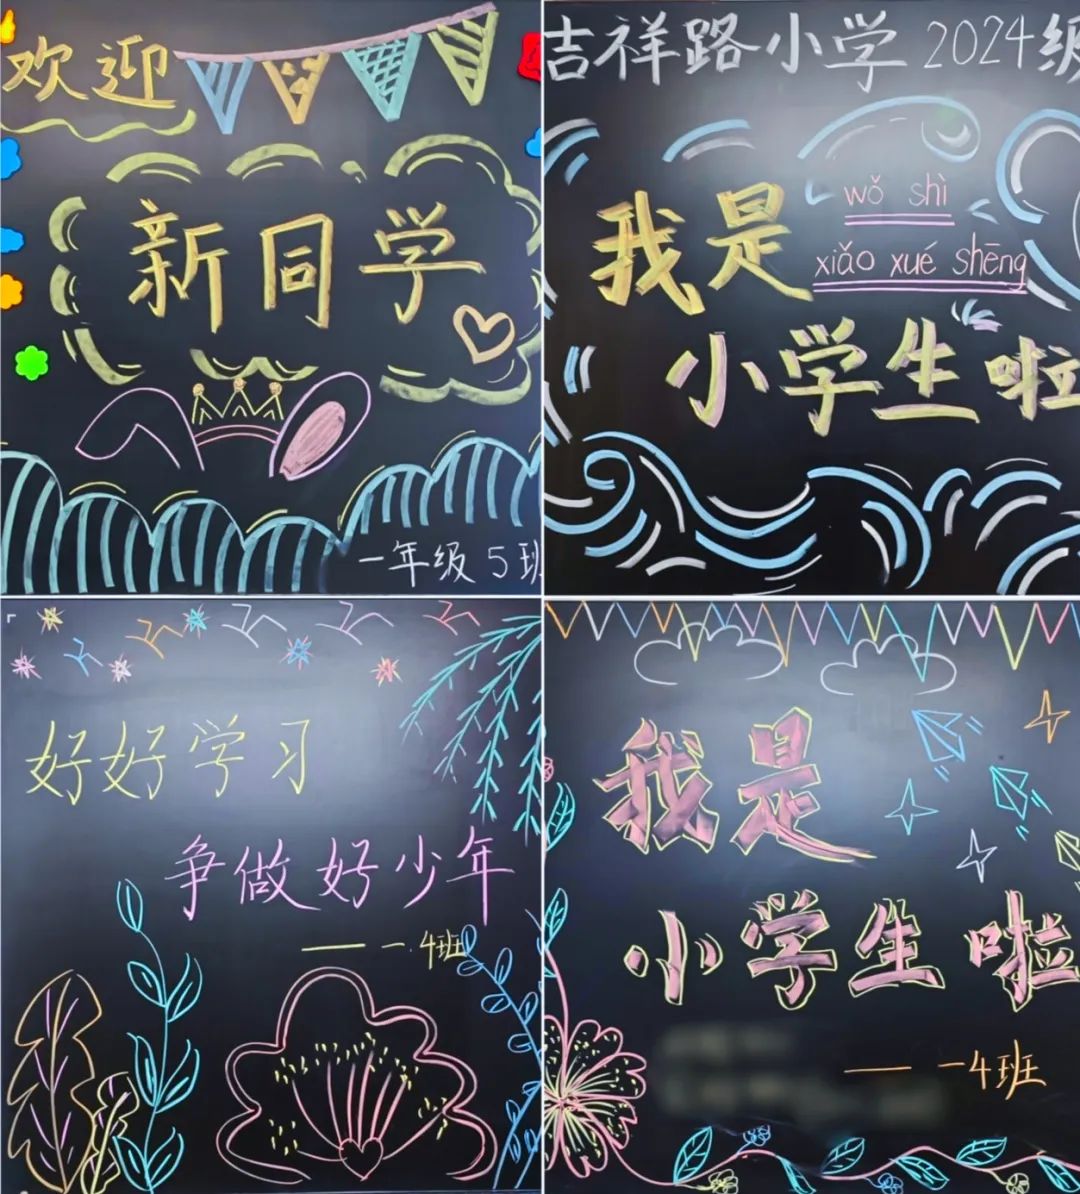 欢迎
新同学
一年级5班
吉祥路小学2024级
我是
wǒ shì
xiǎo xué shēng
小学生啦
好好学习
争做好少年
——一.4班
我是
小学生啦
——一4班